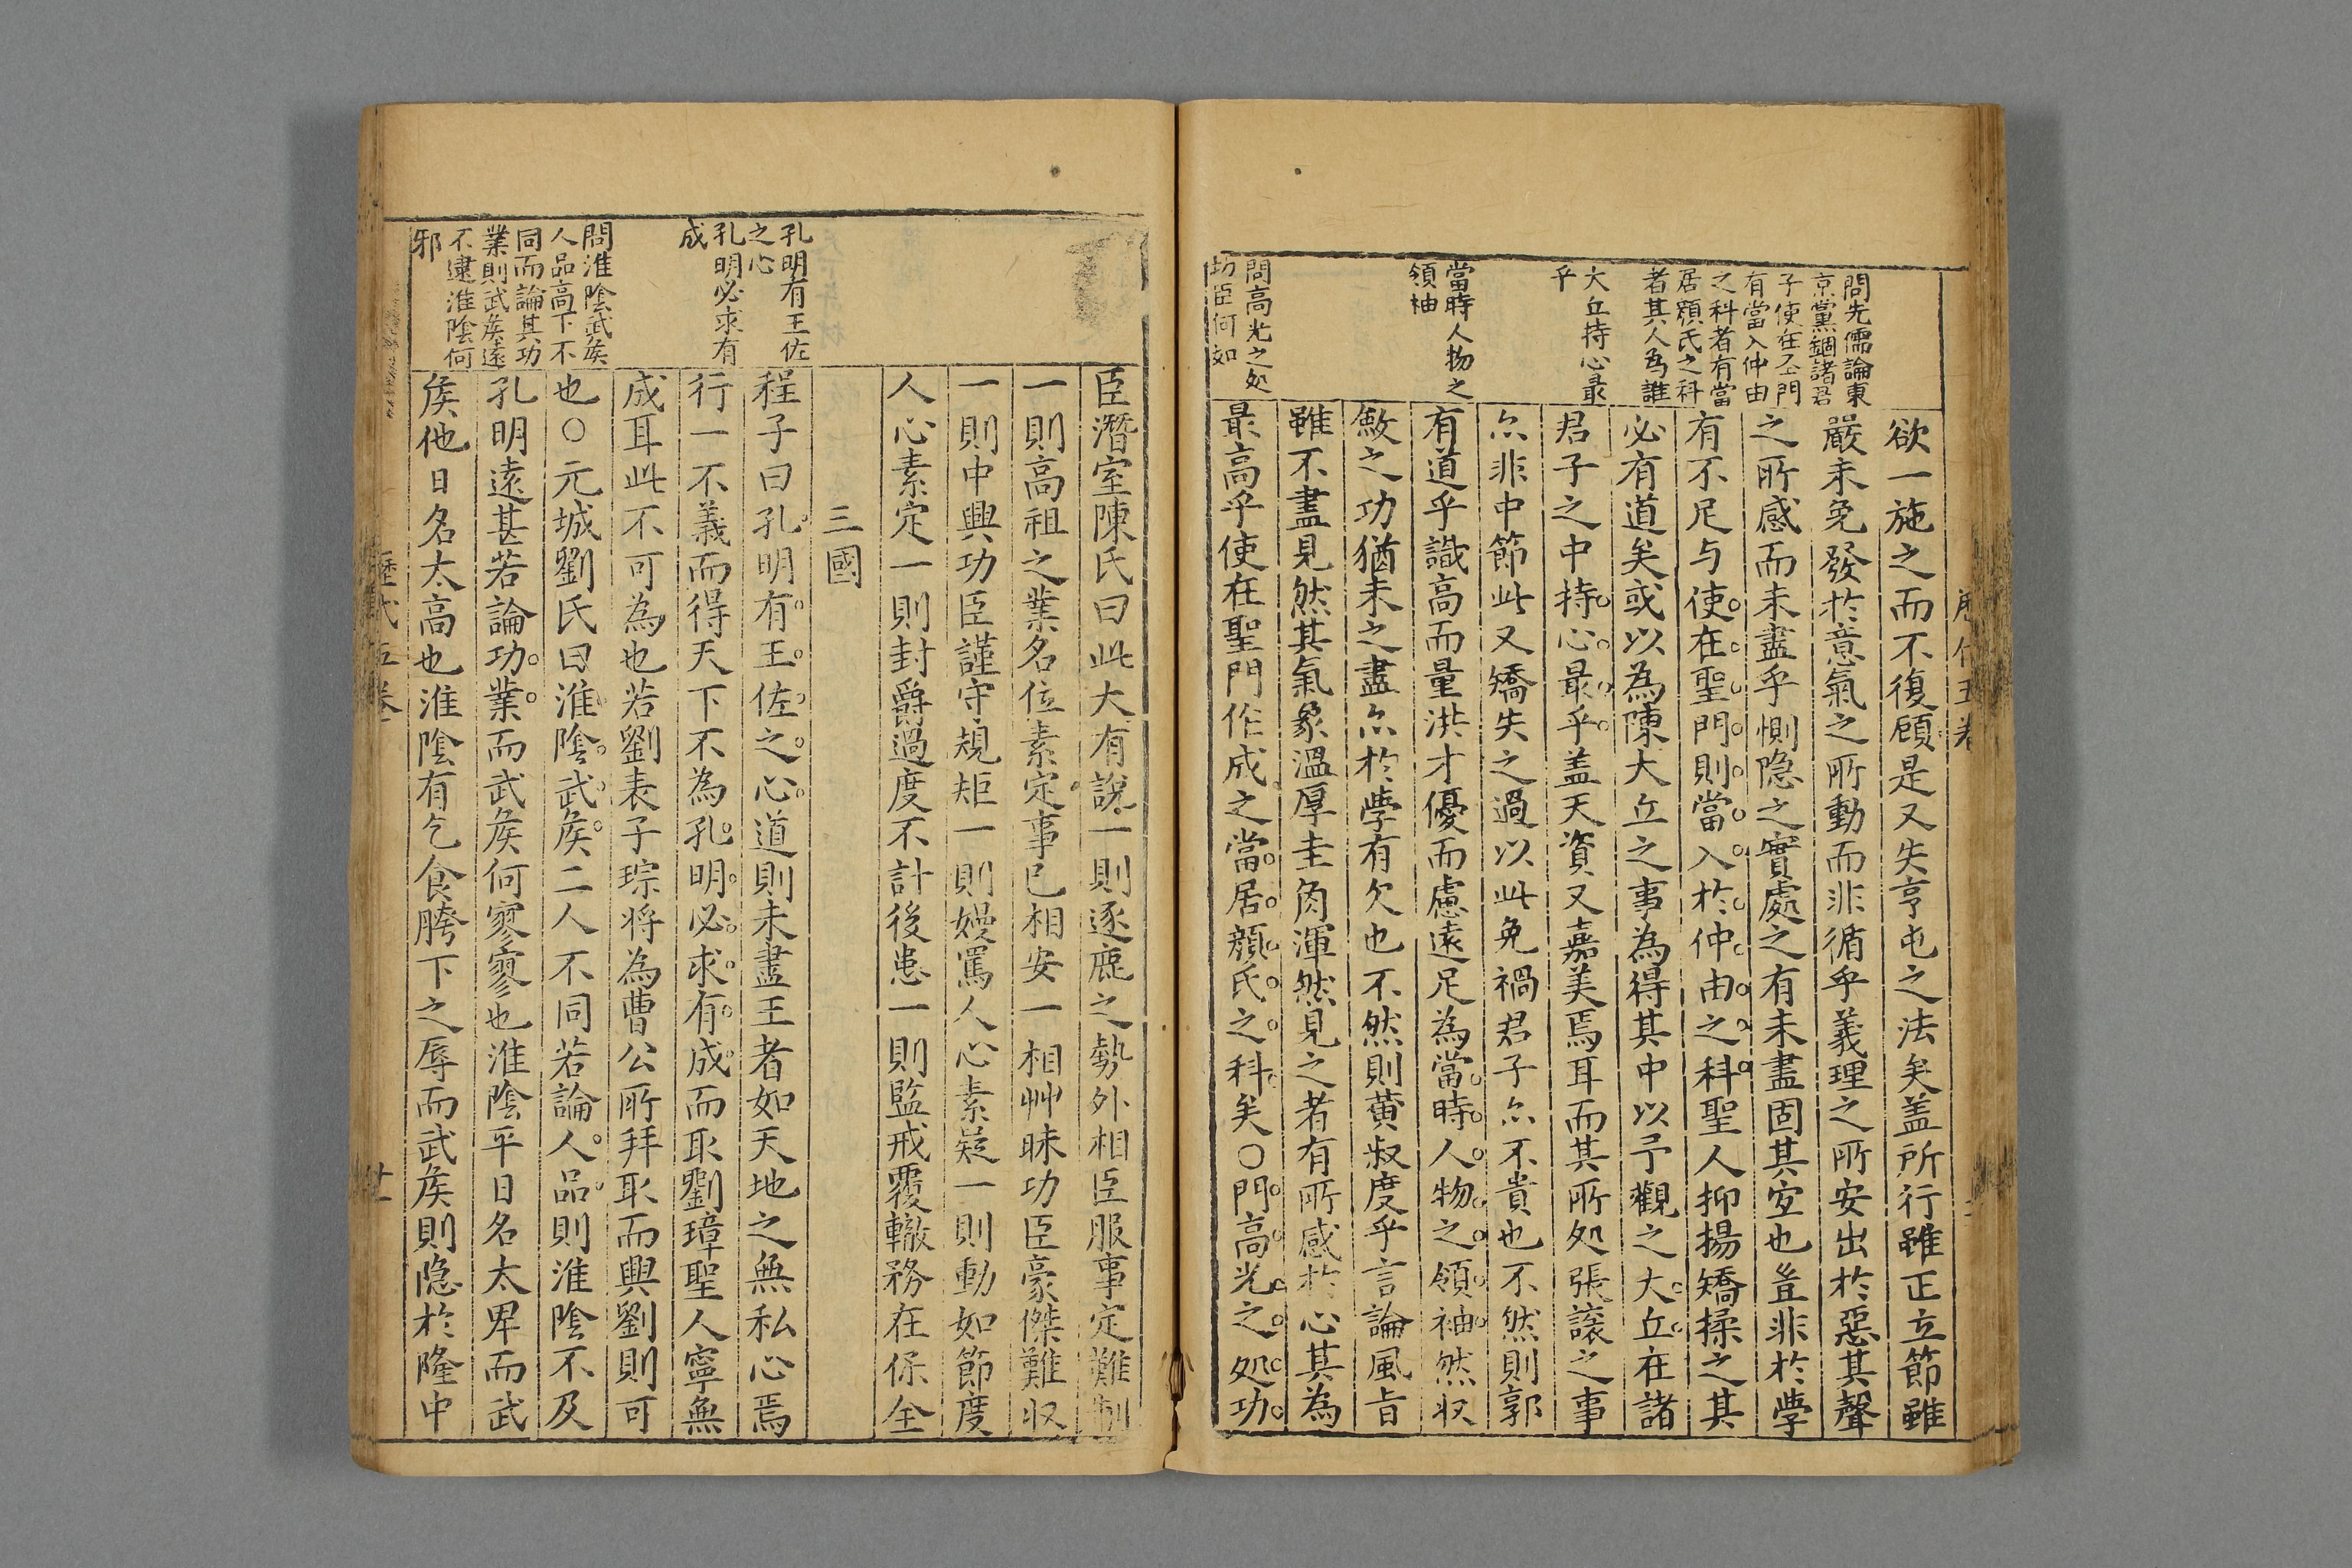 問先儒論東
京黨錮諸君
子使在圣門
有當入仲由
之科者有當
居顏氏之科
者其人為誰
大丘持心最
乎
當時人物之
領袖
問高光之処
功臣何如
欲一施之而不復顧是又失亨屯之法矣盖所行雖正立節雖
嚴未免發於意氣之所動而非循乎義理之所安出於惡其聲
之所感而未盡乎惻隐之實處之有未盡固其宐也豈非於學
有不足与使在聖門則當入於仲由之科聖人抑揚矯揉之其
必有道矣或以為陳大丘之事為得其中以予觀之大丘在諸
君子之中持心最乎盖天資又嘉美焉耳而其所处張讓之事
尒非中節此又矯失之過以此免禍君子尒不貴也不然則郭
有道乎識高而量洪才優而慮遠足為當時人物之領袖然収
斂之功猶未之盡尒於學有欠也不然則黄叔度乎言論風旨
雖不盡見然其氣象溫厚圭角渾然見之者有所感於心其為
最高乎使在聖門作成之當居顏氏之科矣○門高光之処功
孔明有王佐
之心
孔明必求有
成
問淮陰武矦
人品高下不
同而論其功
業則武矦遠
不逮淮陰何
邪
臣潛室陳氏曰此大有說一則逐鹿之勢外相臣服事定難制
一則高祖之業名位素定事已相安一相艸昧功臣豪傑難収
一則中興功臣謹守規矩一則嫚罵人心素疑一則動如節度
人心素定一則封爵過度不計後患一則監戒覆轍務在保全
三國
程子曰孔明有王佐之心道則未盡王者如天地之無私心焉
行一不義而得天下不為孔明必求有成而取劉璋聖人寧無
成耳此不可為也若劉表子琮将為曹公所拜取而興劉則可
也○元城劉氏曰淮陰武矦二人不同若論人品則淮陰不及
孔明遠甚若論功業而武矦何寥寥也淮陰平日名太卑而武
矦他日名太高也淮陰有乞食胯下之辱而武矦則隐於隆中
歷代五卷
廿